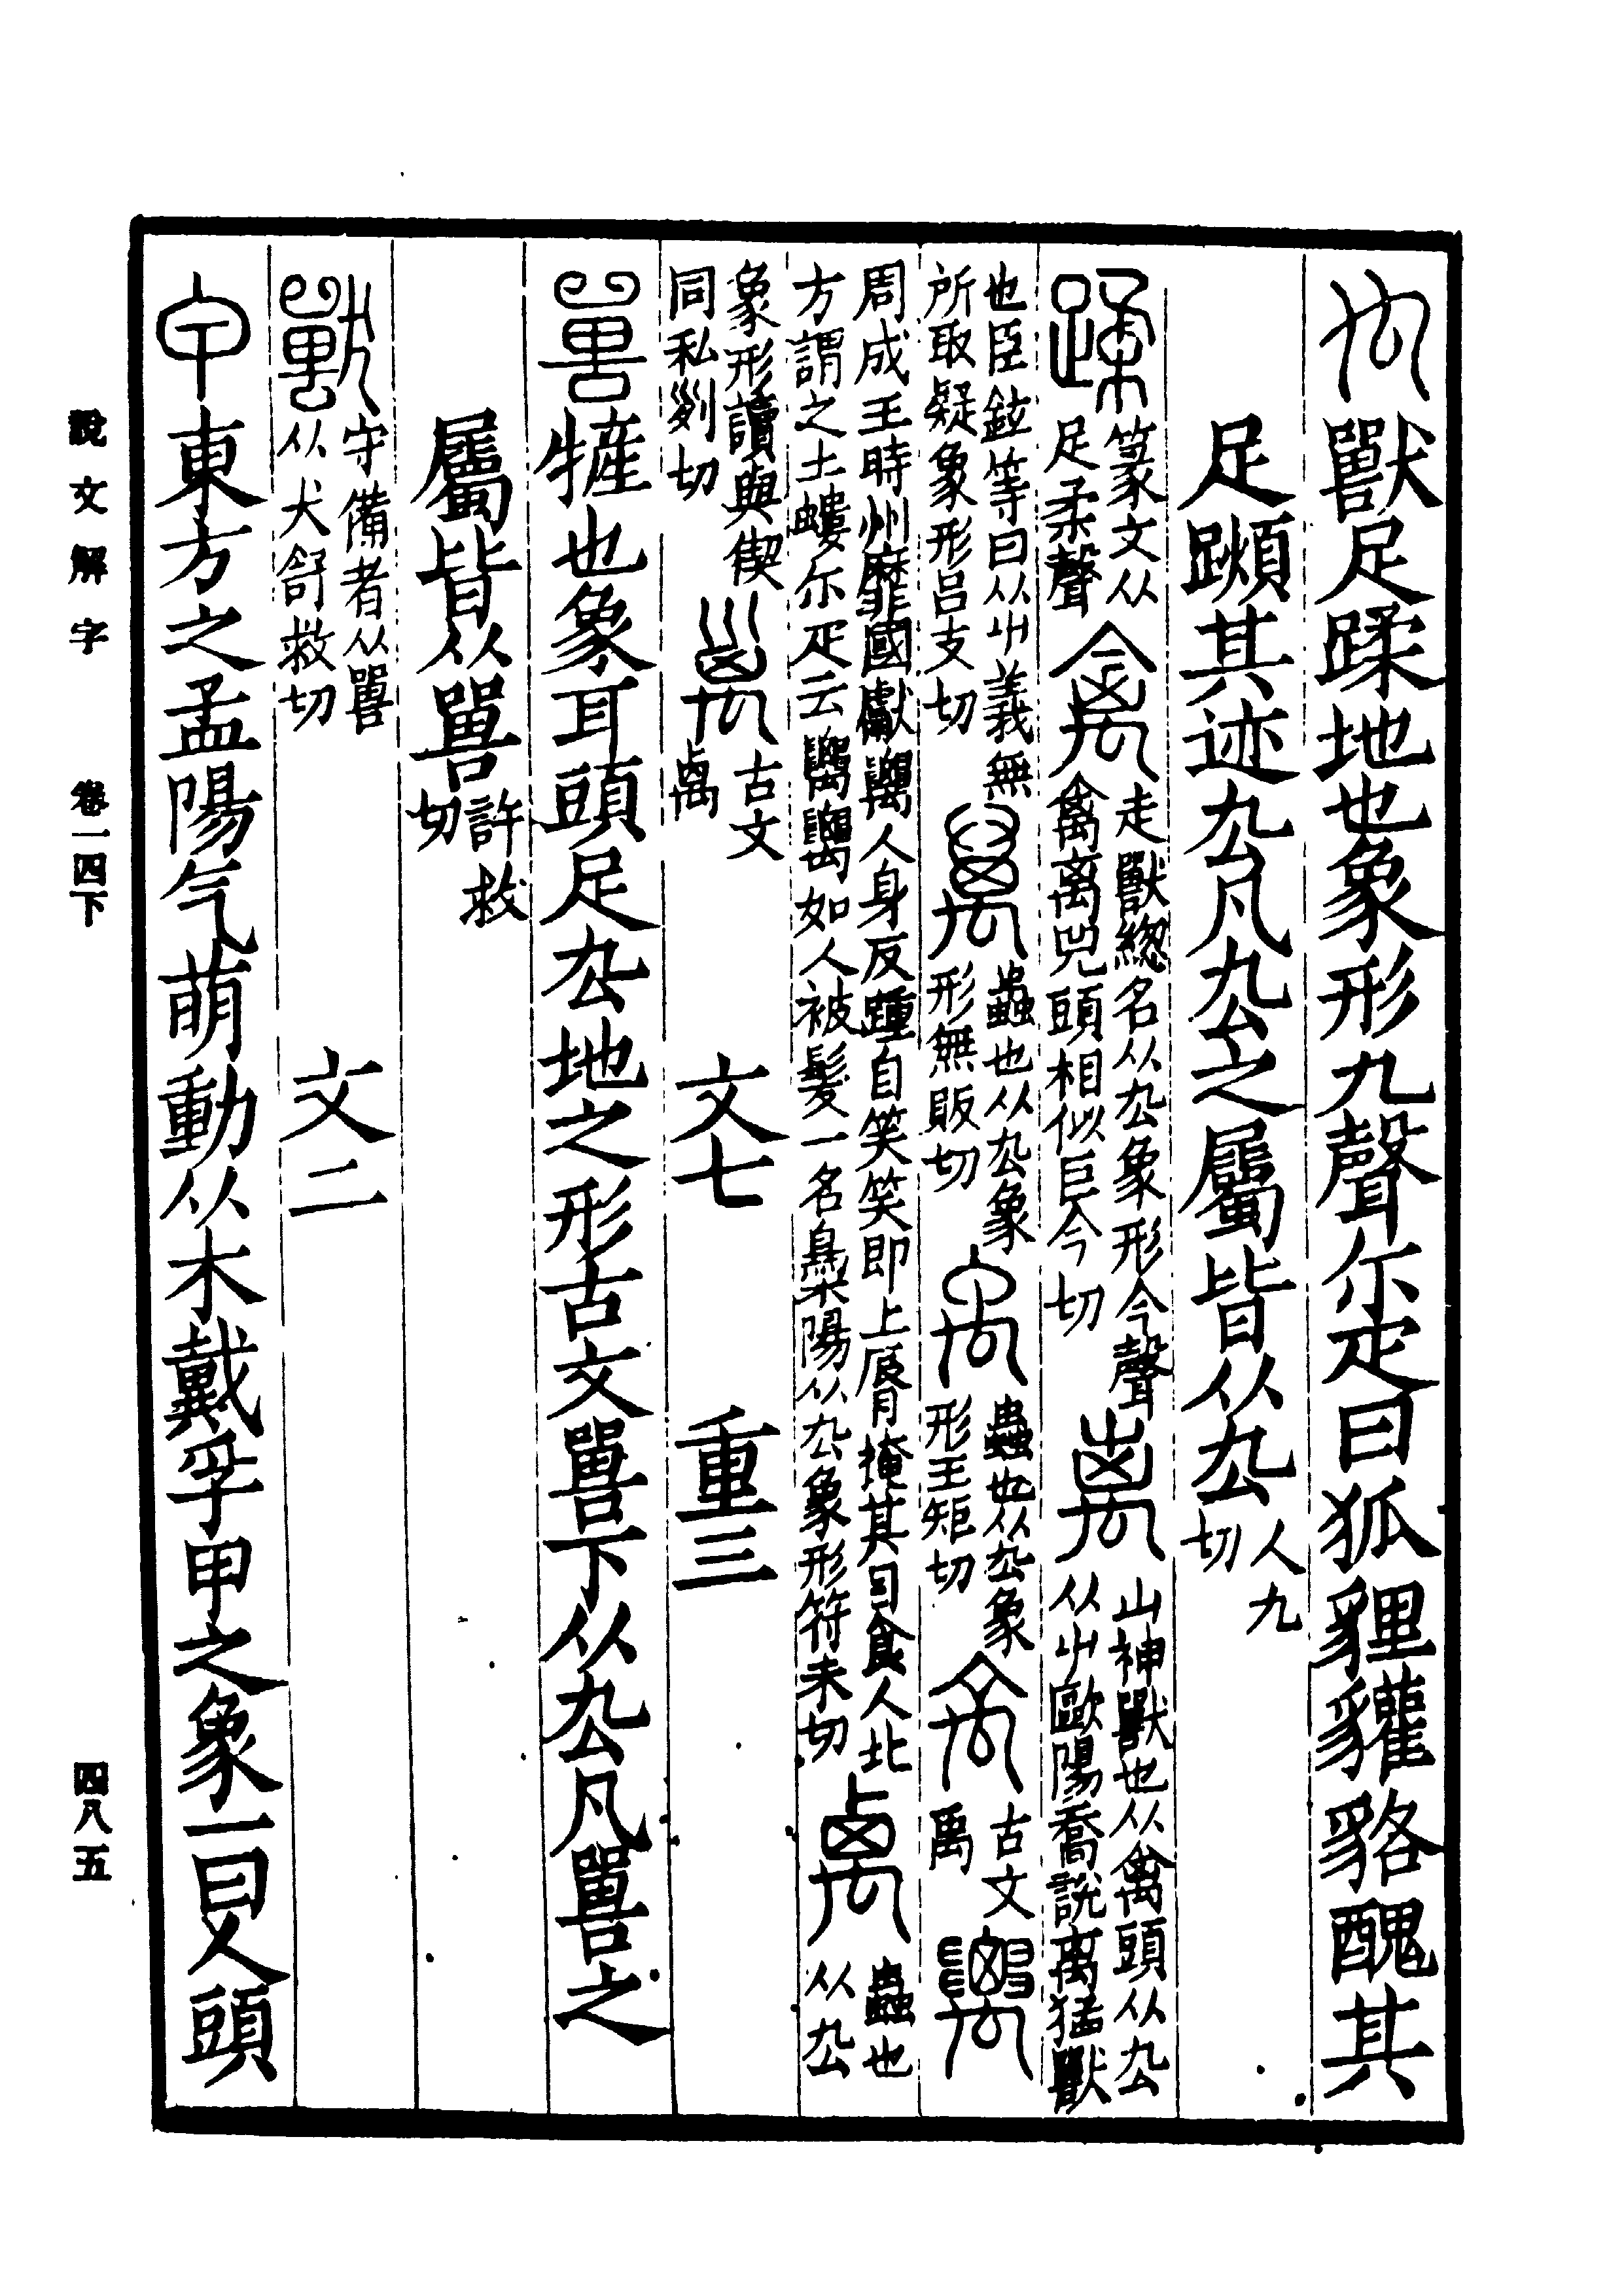 禸獸足蹂地也象形九聲尔疋曰狐貍貛貉醜其
足蹞其迹厹凡厹之屬皆从厹人九切
蹂篆文从足柔聲 禽走獸緫名从厹象形今聲禽离兕頭相似巨今切 离山神獸也从禽頭从厹从屮歐陽喬說离猛獸
也臣鉉等曰从屮義無所取疑象形呂支切 萬蟲也从厹象形無販切 禹蟲也从厹象形王矩切 古文禹 𥝋
周成王時州靡國獻𥝋人身反踵自笑笑即上脣掩其目食人北方謂之土螻尔疋云𥝋𥝋如人被髮一名梟陽从厹象形符未切 禼蟲也从厹
象形讀與偰同私列切 古文禼 文七 重三
嘼㹌也象耳頭足厹地之形古文嘼下从厹凡嘼之
屬皆从嘼許救切
獸守備者从嘼从犬舒救切 文二
甲東方之孟陽气萌動从木戴孚甲之象一曰人頭
說文解字 卷一四下 四八五